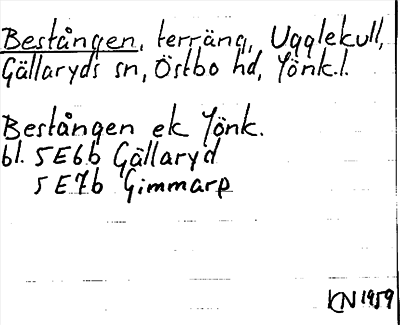 Bestången, terräng, Ugglekull,
Gällaryds sn, Östbo hd, Jönk.l.
Bestången ek Jönk.
bl. 5E6b Gällaryd
5E7b Gimmarp
KN 1959